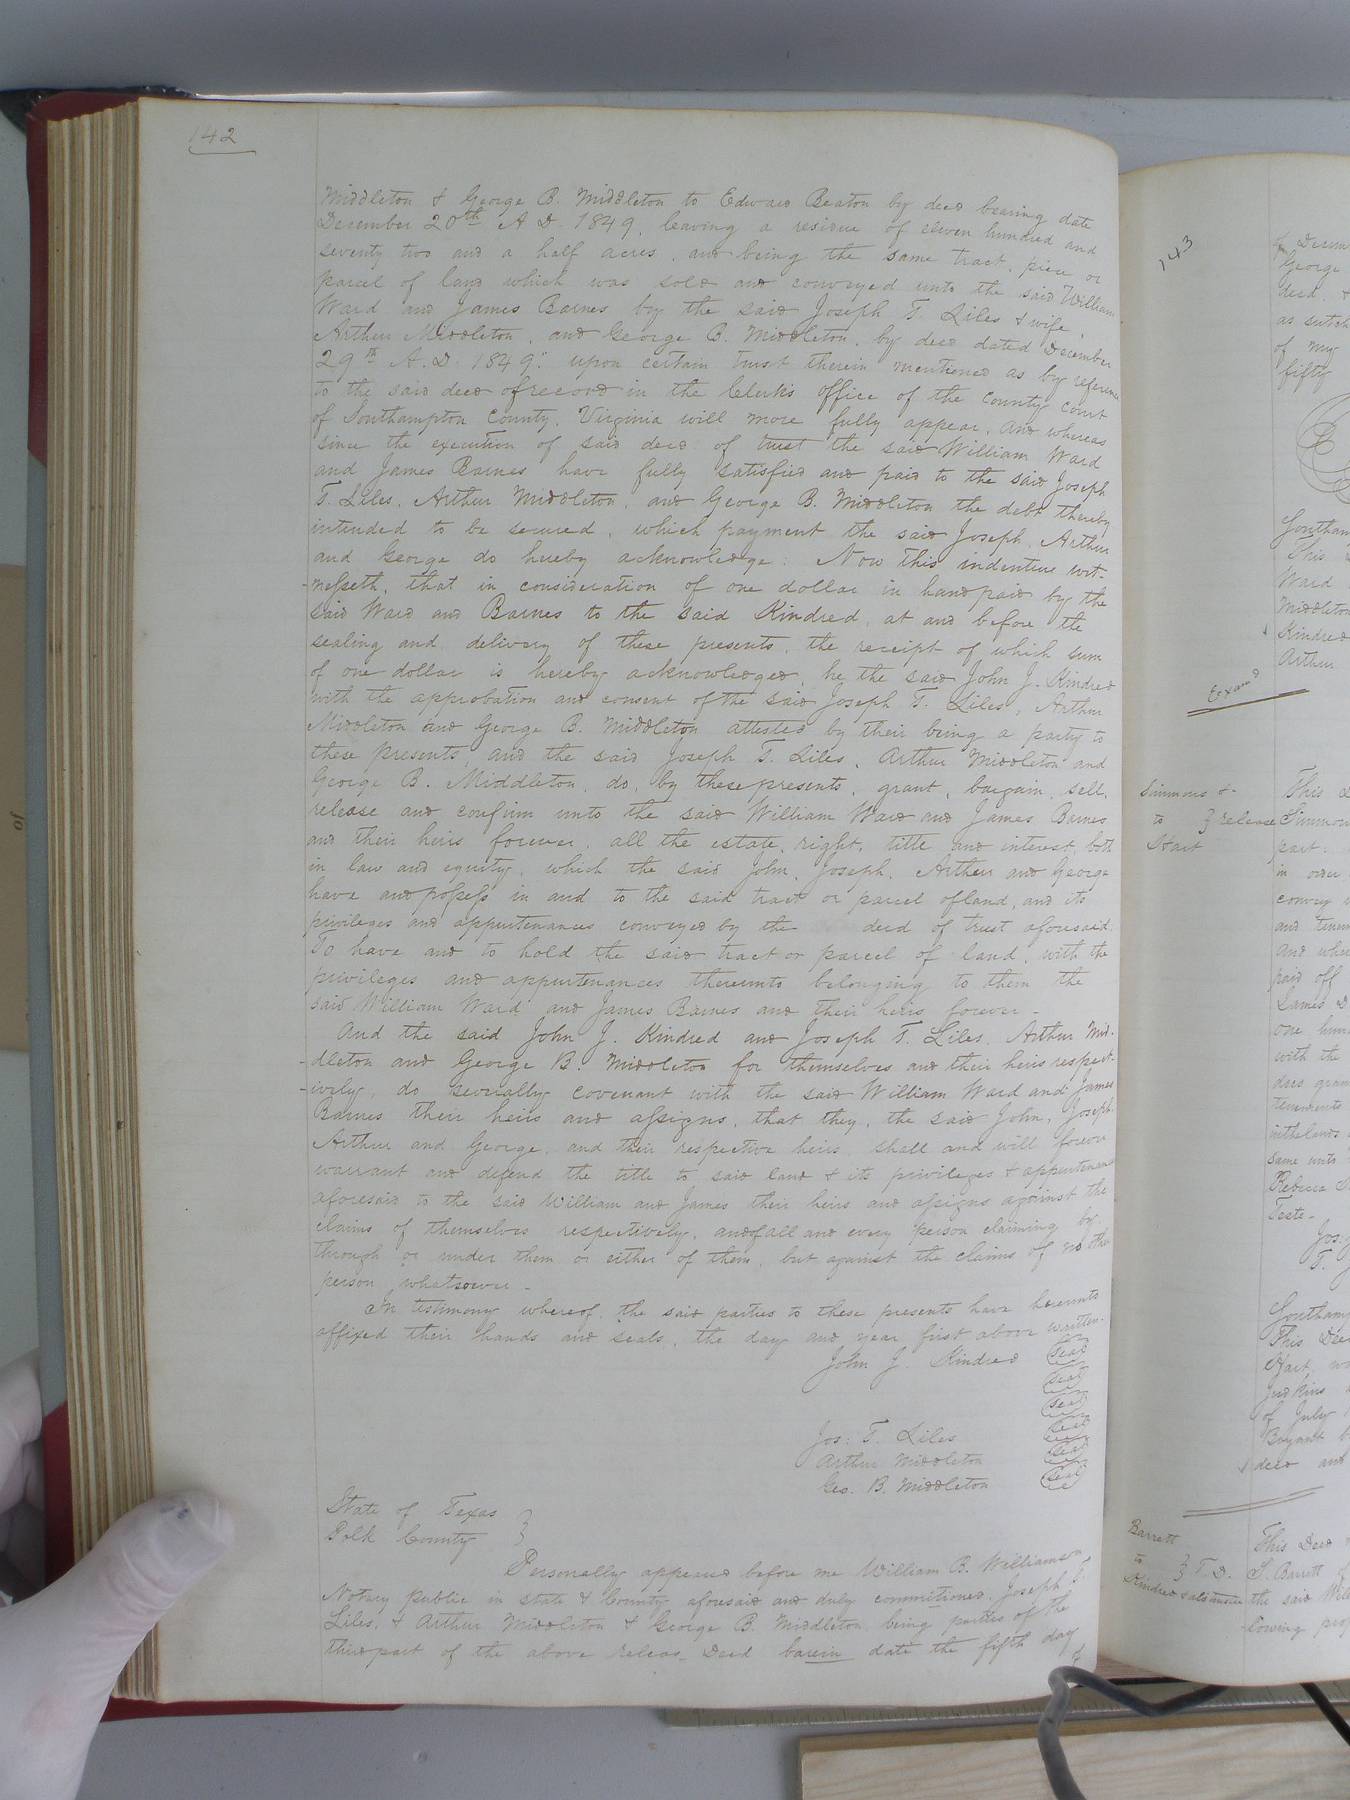 142
Middleton & George B. Middleton to Edward Beaton by deed bearing date
December 20th A D. 1849, leaving a residue of eleven hundred and
seventy two and a half acres, and being the same tract, piece or
parcel of land which was sold and conveyed unto the said William
Ward and James Barnes by the said Joseph T. Liles & wife,
Arthur Middleton, and George B. Middleton, by deed dated December
29th A. D. 1849: upon certain trust therein mentioned as by reference
to the said deed of record in the Clerk's office of the County Court
of Southampton County, Virginia will more fully appear, And whereas
since the execution of said deed of trust the said William Ward
and James Barnes have fully satisfied and paid to the said Joseph
T. Liles, Arthur Middleton, and George B. Middleton the debt thereby
intended to be secured, which payment the said Joseph, Arthur
and George do hereby acknowledge: Now this indenture wit-
-nesseth, that in consideration of one dollar in hand paid by the
said Ward and Barnes to the said Kindred, at and before the
sealing and delivery of these presents, the receipt of which sum
of one dollar is hereby acknowledged, he the said John J. Kindred
with the approbation and consent of the said Joseph T. Liles, Arthur
Middleton and George B. Middleton attested by their being a party to
these presents, and the said Joseph T. Liles, Arthur Middleton and
George B. Middleton, do, by these presents, grant, bargain, sell,
release and confirm unto the said William Ward and James Barnes
and their heirs forever, all the estate, right, title and interest, both
in law and equity, which the said John, Joseph, Arthur and George
have and possess in and to the said tract or parcel of land, and its
privileges and appurtenances conveyed by the deed of trust aforesaid.
To have and to hold the said tract or parcel of land, with the
privileges and appurtenances thereunto belonging to them the
said William Ward and James Barnes and their heirs forever -
And the said John J. Kindred and Joseph T. Liles, Arthur Mid-
-dleton and George B. Middleton for themselves and their heirs respect-
-ively, do severally covenant with the said William Ward and James
Barnes their heirs and assigns, that they, the said John, Joseph,
Arthur and George, and their respective heirs shall and will forever
warrant and defend the title to said land & its privileges & appurtenances
aforesaid to the said William and James their heirs and assigns against the
claims of themselves respectively, and of all and every person claiming by
through or under them or either of them, but against the claims of no other
person whatsoever -
In testimony whereof, the said parties to these presents have hereunto
affixed their hands and seals, the day and year first above written.
John J. Kindred (seal)
(seal)
(seal)
Jos: T. Liles (seal)
Arthur Middleton (seal)
Geo. B. Middleton (seal)
State of Texas }
Polk County }
Personally appeared before me William B. Williamson
Notary public in state & County aforesaid and duly commitioned, Joseph T.
Liles, & Arthur Middleton & George B. Middleton, being parties of the
third part of the above releas- Deed barein date the fifth day
of
143
George
deed, &
as
of my
fifty
This
Ward
Middleton
Kindred
Arthur
Exam'd
Simmons &
to } release
Hart
This
Simmons
part:
in order
convey
and
And
paid off
James D
one
with the
does
tenements
in the lands
same unto
Rebecca
Teste-
Jos:
T. J
This Deed
Hart, w
Judkins
of July
Bryant
deed and
Barrett
to } T. D.
Kindred
This Deed
S. Barrett
the said
lowing